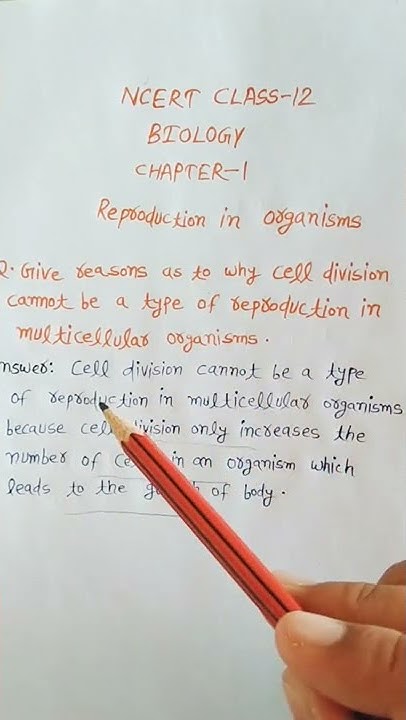 NCERT CLASS-12
BIOLOGY
CHAPTER-1
Reproduction in organisms
Q. Give reasons as to why cell division
cannot be a type of reproduction in
multicellular organisms.
nswer: Cell division cannot be a type
of reproduction in multicellular organisms
because cell division only increases the
number of ce in an organism which
leads to the g of body.